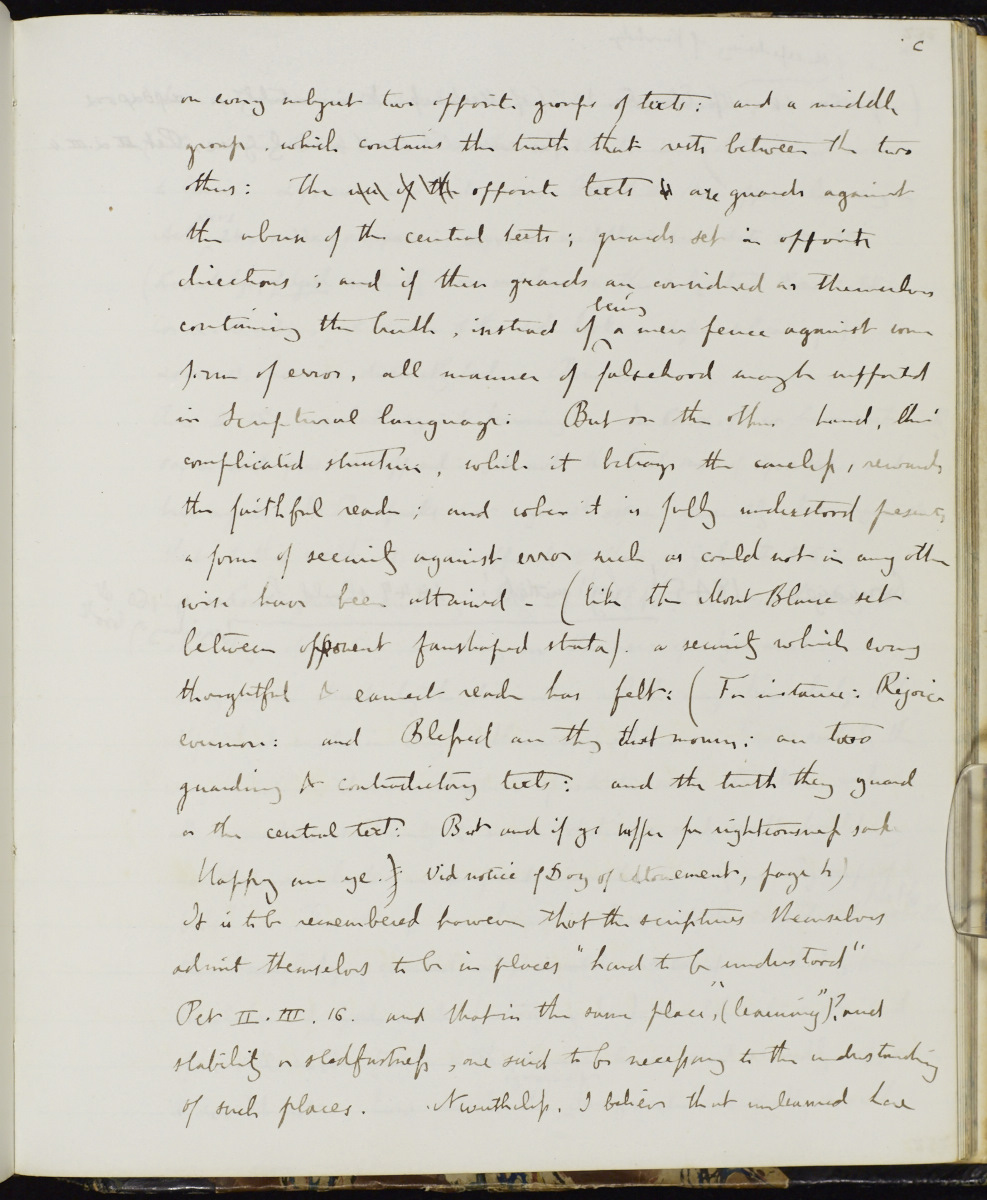 c
on every subject two opposite groups of texts: and a middle
group, which contains the truth that rests between the two
others: the use of the opposite texts & are guards against
the abuse of the central texts; guards set in opposite
directions; and if these guards are considered as themselves
being
containing the truth, instead of a mere fence against some
form of error, all manner of falsehood may be supported
in Scriptural language: But on the other hand, this
complicated structure, while it betrays the careless, rewards
the faithful reader; and when it is fully understood presents
a form of security against error such as could not in any other
wise have been attained - (like the Mont Blanc set
between opponent fanshaped strata). a security which every
thoughtful & earnest reader has felt: (For instance: Rejoice
evermore: and Blessed are they that mourn: are two
guarding & contradictory texts: and the truth they guard
is the central text: But and if ye suffer for righteousness sake
Happy are ye.) Vid notice of Day of Atonement, page h)
It is to be remembered however that the scriptures themselves
admit themselves to be in places "hard to be understood"
Pet II. III. 16. and that in the same place, "(learning")? and
stability or stedfastness, are said to be necessary to the understanding
of such places. Nevertheless, I believe that unlearned have